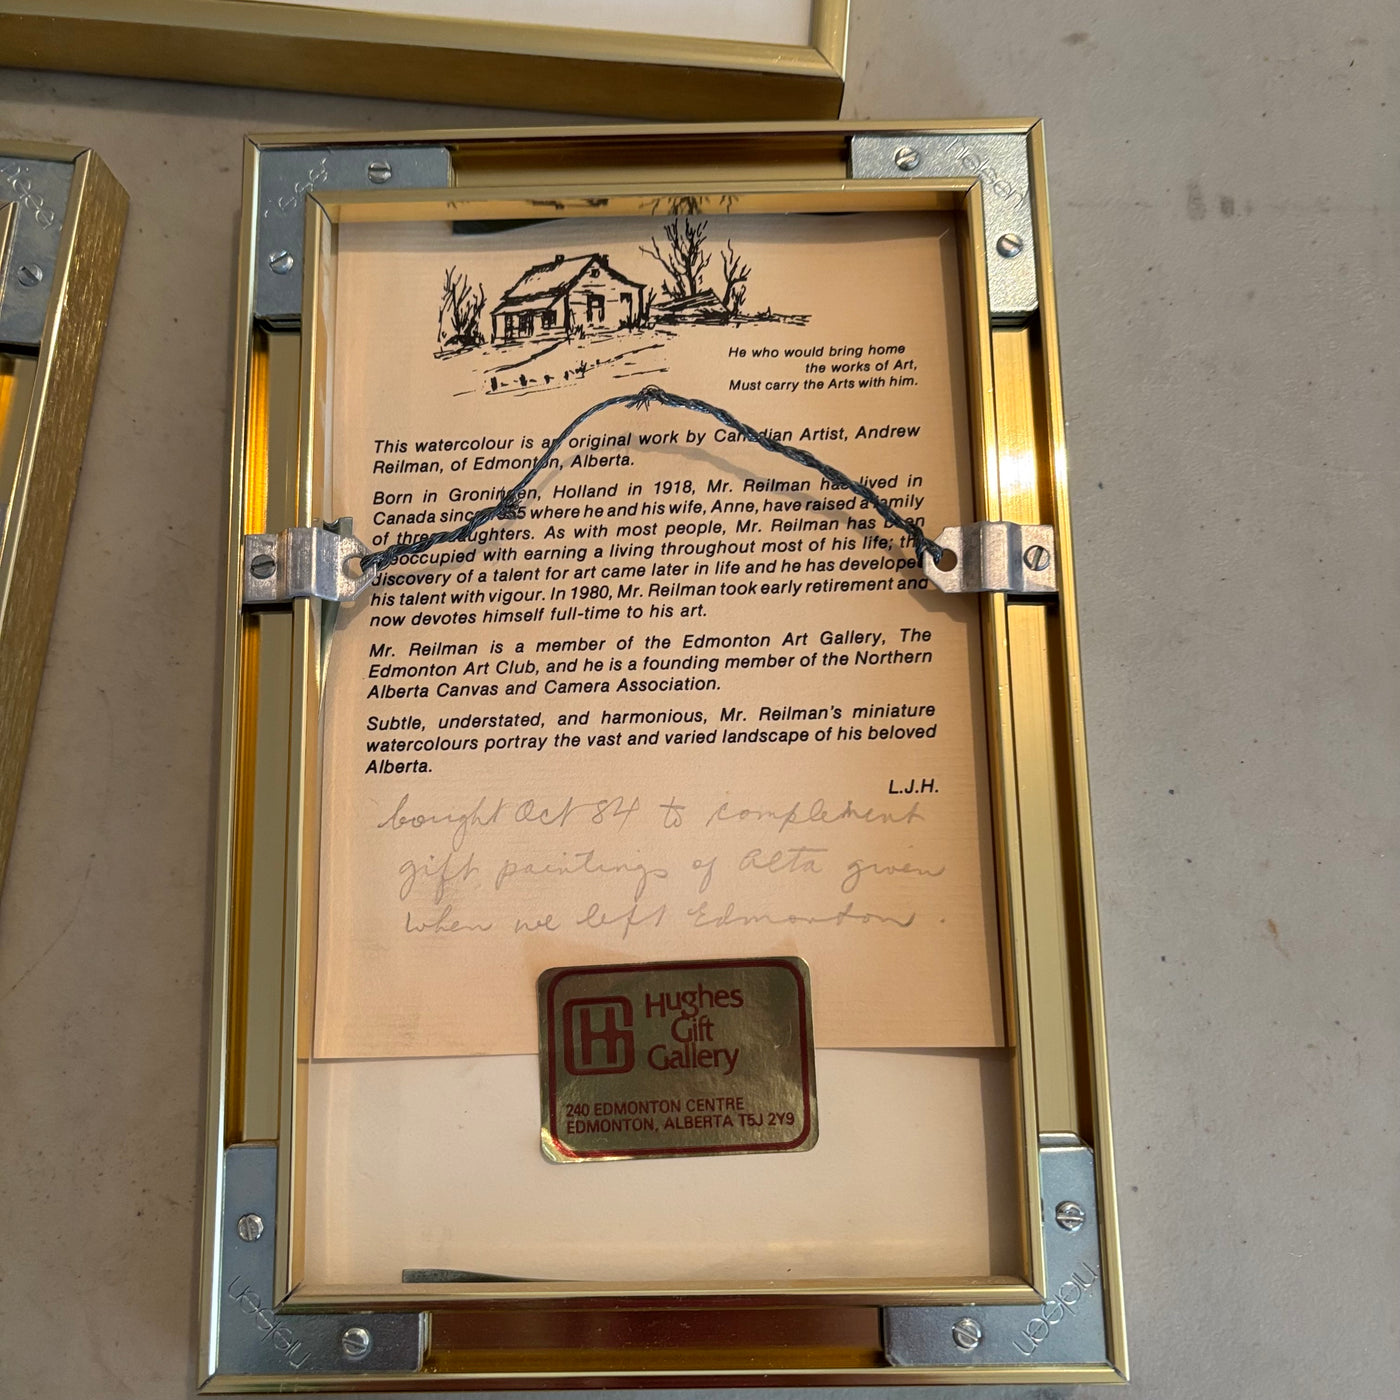 nielsen
He who would bring home
the works of Art,
Must carry the Arts with him.
This watercolour is an original work by Canadian Artist, Andrew
Reilman, of Edmonton, Alberta.
Born in Groningen, Holland in 1918, Mr. Reilman has lived in
Canada since where he and his wife, Anne, have raised a family
of three daughters. As with most people, Mr. Reilman has been
preoccupied with earning a living throughout most of his life; the
discovery of a talent for art came later in life and he has developed
his talent with vigour. In 1980, Mr. Reilman took early retirement and
now devotes himself full-time to his art.
Mr. Reilman is a member of the Edmonton Art Gallery, The
Edmonton Art Club, and he is a founding member of the Northern
Alberta Canvas and Camera Association.
Subtle, understated, and harmonious, Mr. Reilman's miniature
watercolours portray the vast and varied landscape of his beloved
Alberta.
L.J.H.
bought Oct 84 to complement
gift paintings of Alta given
when we left Edmonton.
HG
Hughes
Gift
Gallery
240 EDMONTON CENTRE
EDMONTON, ALBERTA T5J 2Y9
nielsen
nielsen